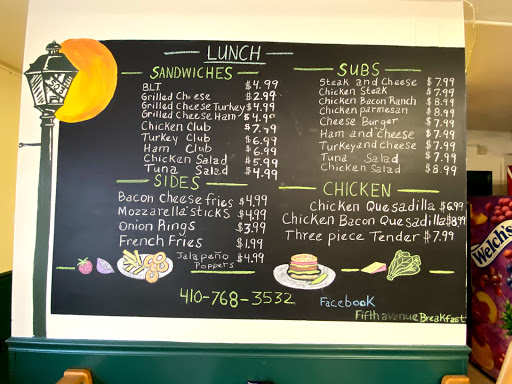 LUNCH
SANDWICHES
BLT $4.99
Grilled Cheese $2.99
Grilled Cheese Turkey $4.99
Grilled Cheese Ham $4.99
Chicken Club $7.49
Turkey Club $6.49
Ham Club $6.99
Chicken Salad $5.99
Tuna Salad $4.99
SIDES
Bacon Cheese fries $4.99
Mozzarella sticks $4.99
Onion Rings $3.99
French Fries $1.99
Jalapeño Poppers $4.99
SUBS
Steak and Cheese $7.99
Chicken Steak $7.99
Chicken Bacon Ranch $8.99
Chicken parmesan $8.99
Cheese Burger $7.99
Ham and cheese $7.99
Turkey and cheese $7.99
Tuna Salad $7.99
Chicken Salad $8.99
CHICKEN
Chicken Quesadilla $6.99
Chicken Bacon Quesadilla $8.99
Three piece Tender $7.99
410-768-3532
Facebook
Fifth avenue Breakfast
Welch's